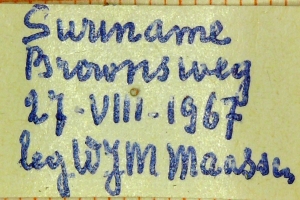 Suriname
Brownsweg
27-VIII-1967
leg WJM Maassen